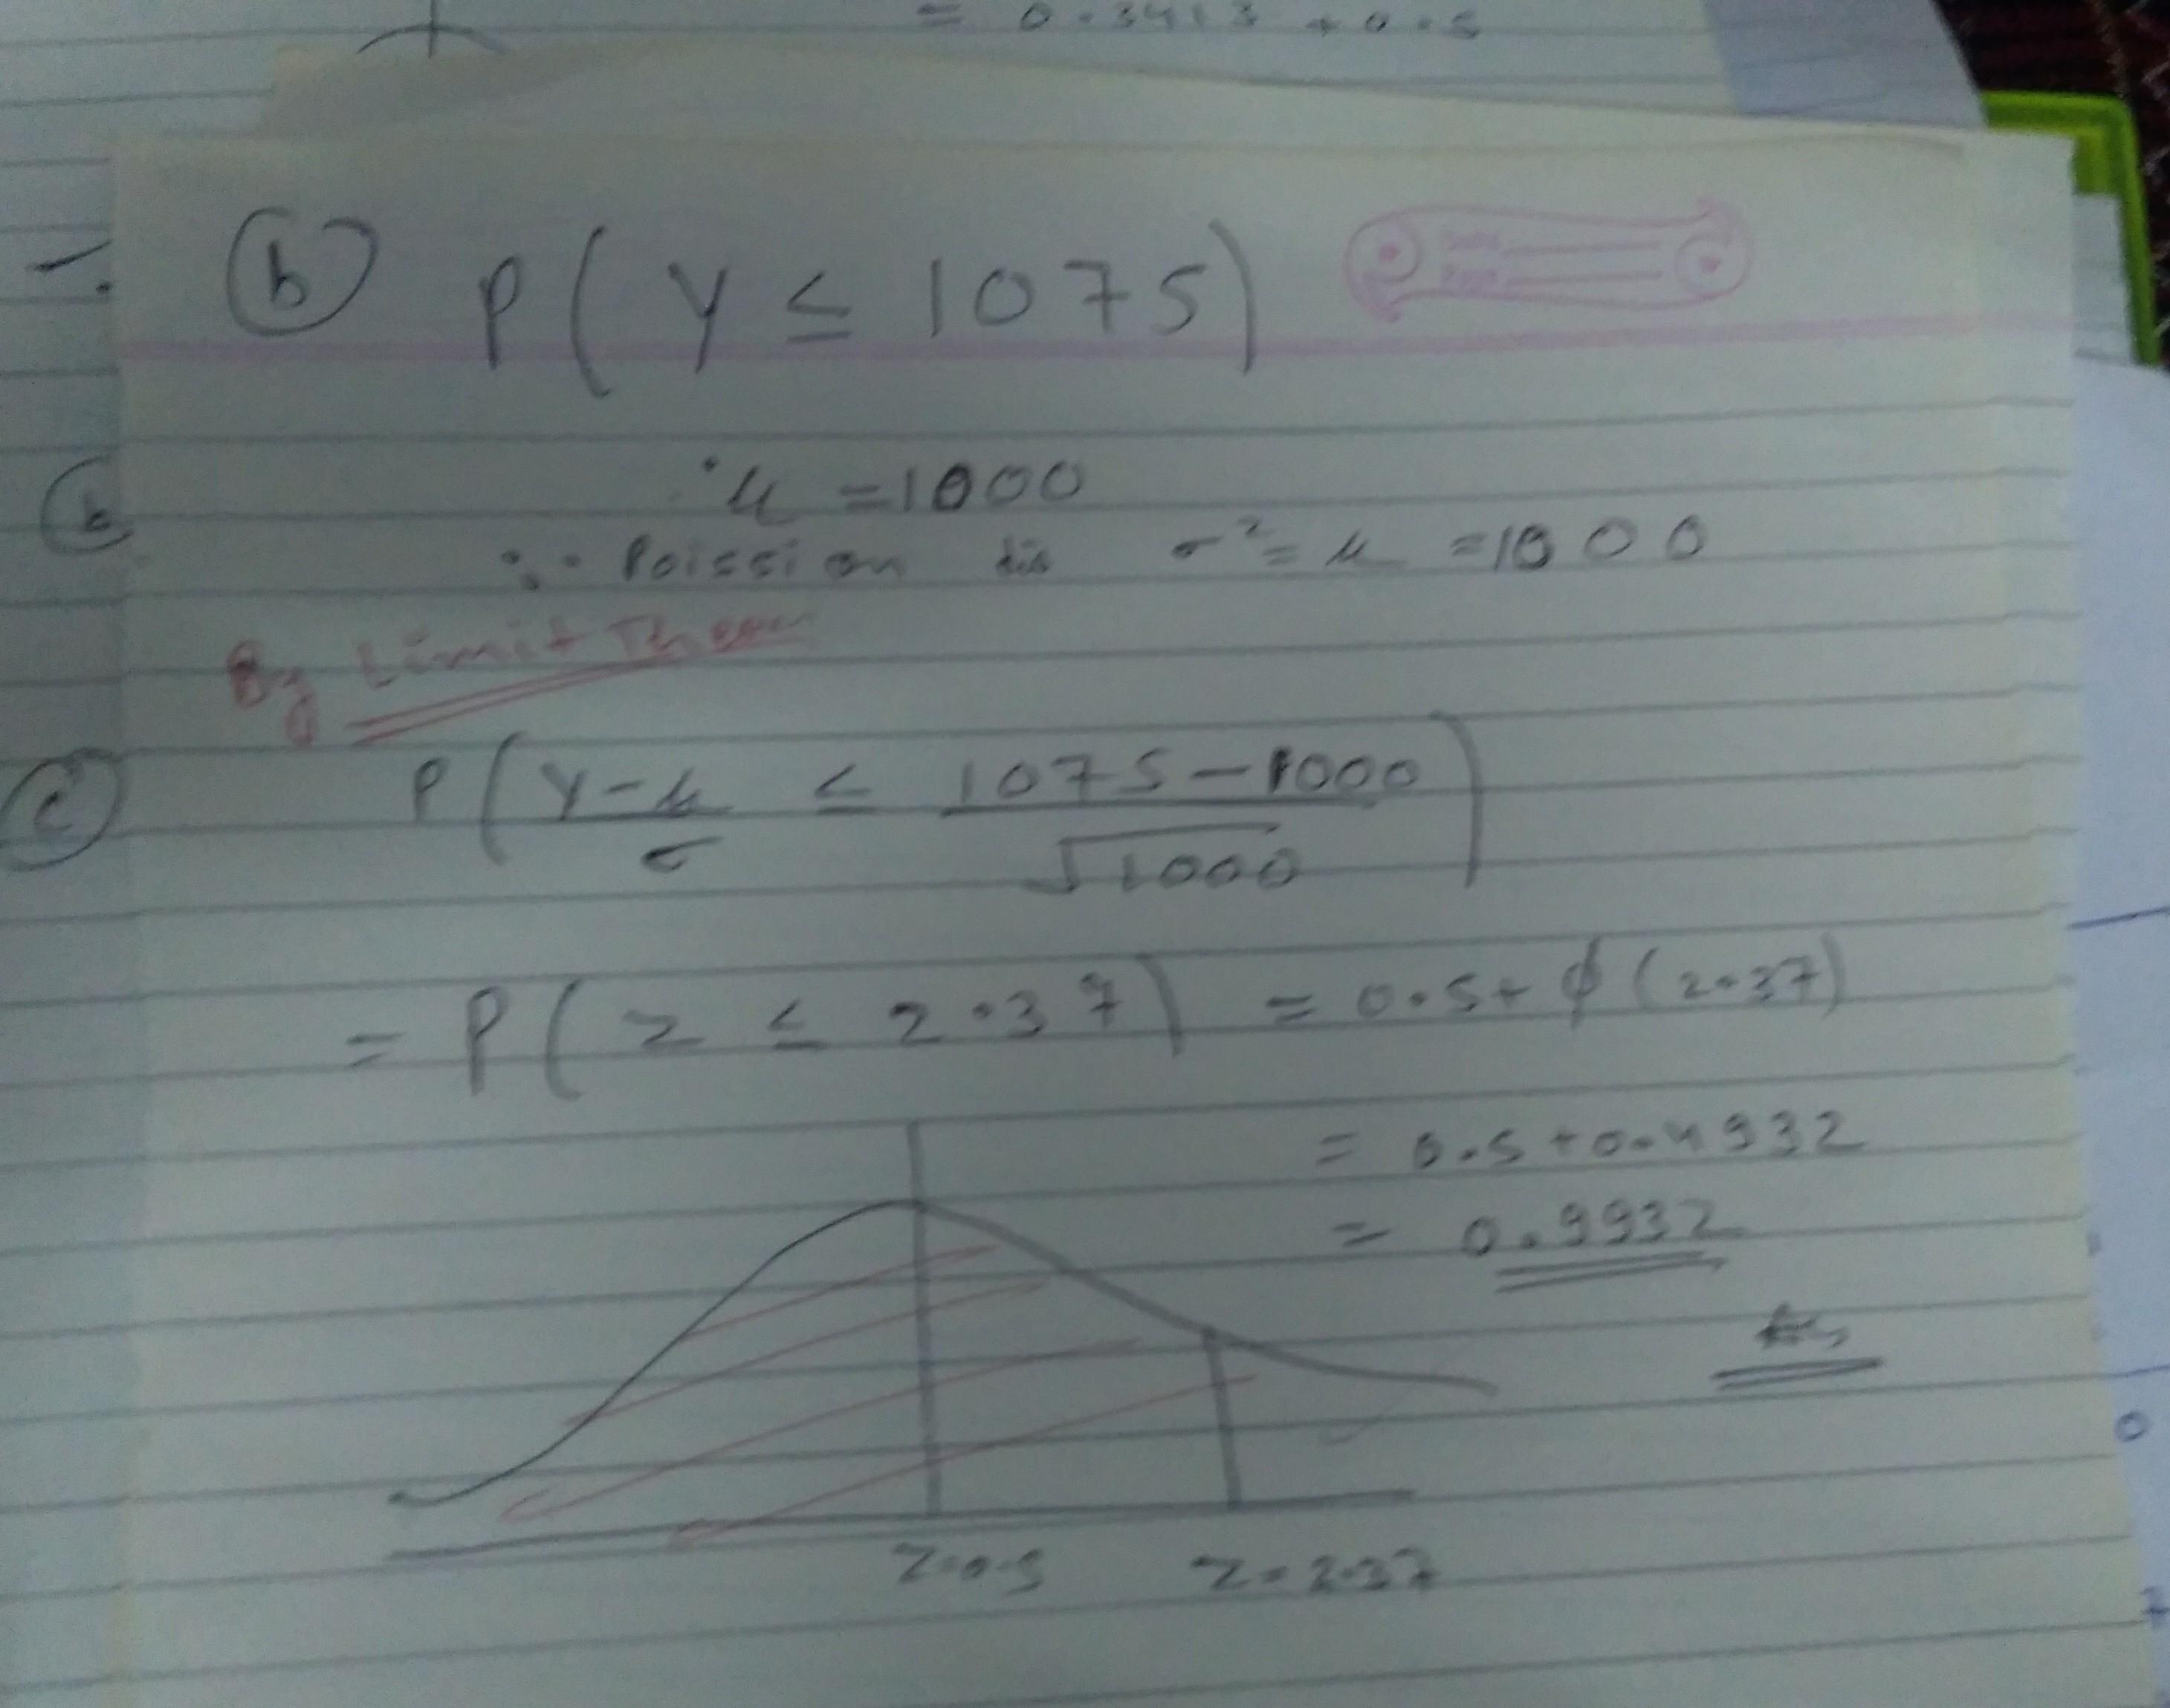 = 0.3413 + 0.5
(b) P( Y ≤ 1075)
μ = 1000
∴ Poission dis σ² = μ = 1000
By Limit Theom
(c) P( Y-μ / σ ≤ 1075-1000 / √1000 )
= P( Z ≤ 2.37) = 0.5+ ϕ(2.37)
= 0.5+0.4932
= 0.9932
Z=0.5 Z=2.37